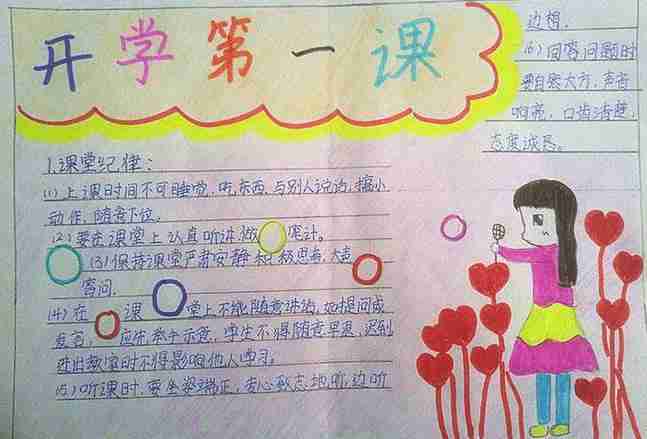 开学第一课
1.课堂纪律：
(1)上课时间不可睡觉,吃东西,与别人说话,搞小
动作,随意下位。
(2)要在课堂上认真听讲,做笔记。
(3)保持课堂严肃安静积极思考,大声
答问.
(4)在课堂上不能随意讲话,如提问或
发言,应先举手示意,学生不得随意早退,迟到
进出教室时不得影响他人学习。
(5)听课时,要坐姿端正,专心致志地听,边听
边想.
(6)回答问题时
要自然大方,声音
响亮,口齿清楚,
态度诚恳。